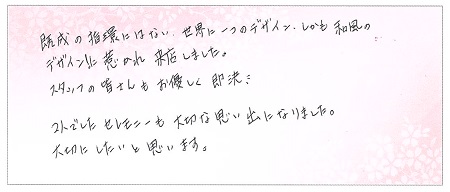 既成の指環にはない、世界に一つのデザイン、しかも和風の
デザイン!に惹かれ来店しました。
スタッフの皆さんもお優しく即決:
2人でしたセレモニーも大切な思い出になりました。
大切にしたいと思います。